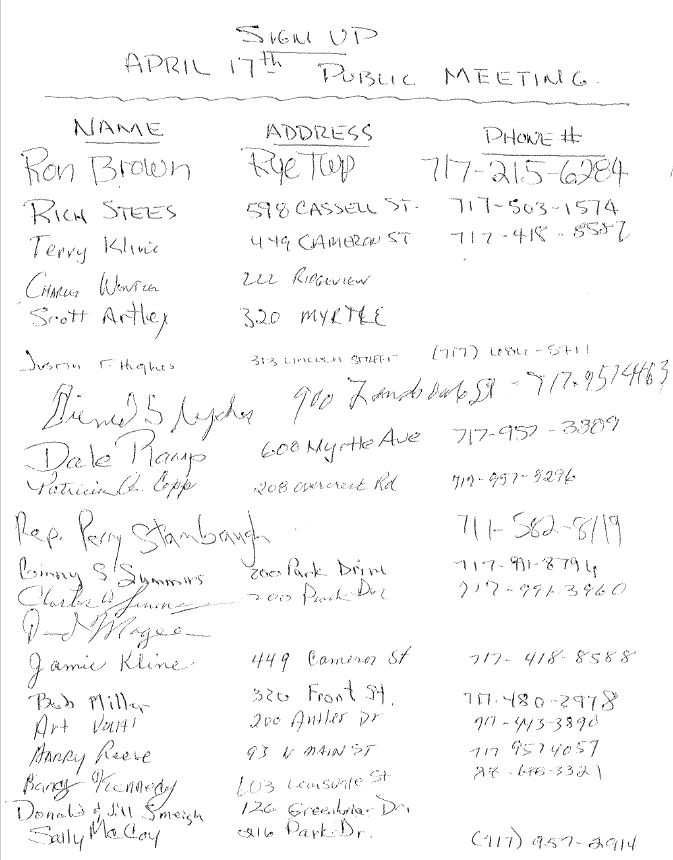 SIGN UP
APRIL 17th PUBLIC MEETING.
NAME ADDRESS PHONE #
Ron Brown Rye Twp 717-215-6284
RICH STEES 598 CASSELL ST. 717-503-1574
Terry Kline 449 CAMERON ST 717-418-8587
CHARLES 222 RIDGEVIEW
Scott 320 MYRTLE
Justin F. Hughes 313 LINCOLN STREET
900 717-9574463
Dale 608 Myrtle Ave 717-957-3389
Patricia A. Copp 208 overcrest Rd 717-957-3296
Rep. Perry Stambaugh 711-582-8119
Ginny S Summers 200 Park Drive
200 Park 717-991-3960
Magee
Jamie Kline 449 Cameron St 717-418-8588
Bob Miller 320 Front St. 717-480-2978
Art 200 Antler Dr
HARRY Reese 93 N MAIN ST 717 9574057
Kennedy St
Donald & Jill Smeigh 126 Greenbriar Dr.
Sally McCoy Park Dr. (717) 957-2914